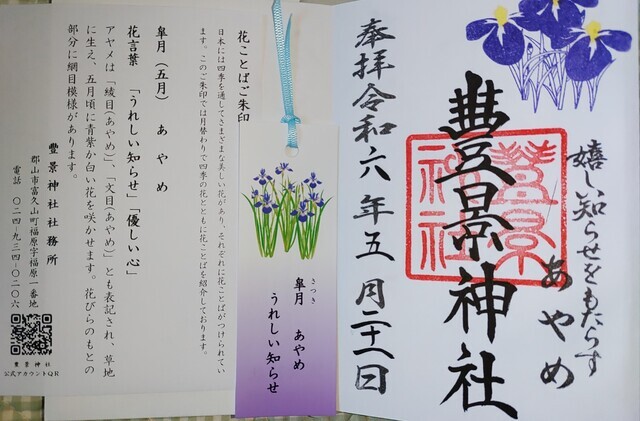 嬉しい知らせをもたらす
あやめ
豐景神社
豐景
神社
奉拝令和六年五月二十一日
さつき
皐月 あやめ
うれしい知らせ
花ことばご朱印
日本には四季を通してさまざまな美しい花があり、それぞれに花ことばがつけられてい
ます。このご朱印では月替わりで四季の花とともに花ことばを紹介しております。
皐月(五月) あやめ
花言葉 「うれしい知らせ」「優しい心」
アヤメは、「綾目(あやめ)」、「文目(あやめ)」とも表記され、草地
に生え、五月頃に青紫か白い花を咲かせます。花びらのもとの
部分に網目模様があります。
豐景神社社務所
郡山市富久山町福原字福原一番地
電話 〇二四-九三四-〇二〇六
豐景神社
公式アカウントQR